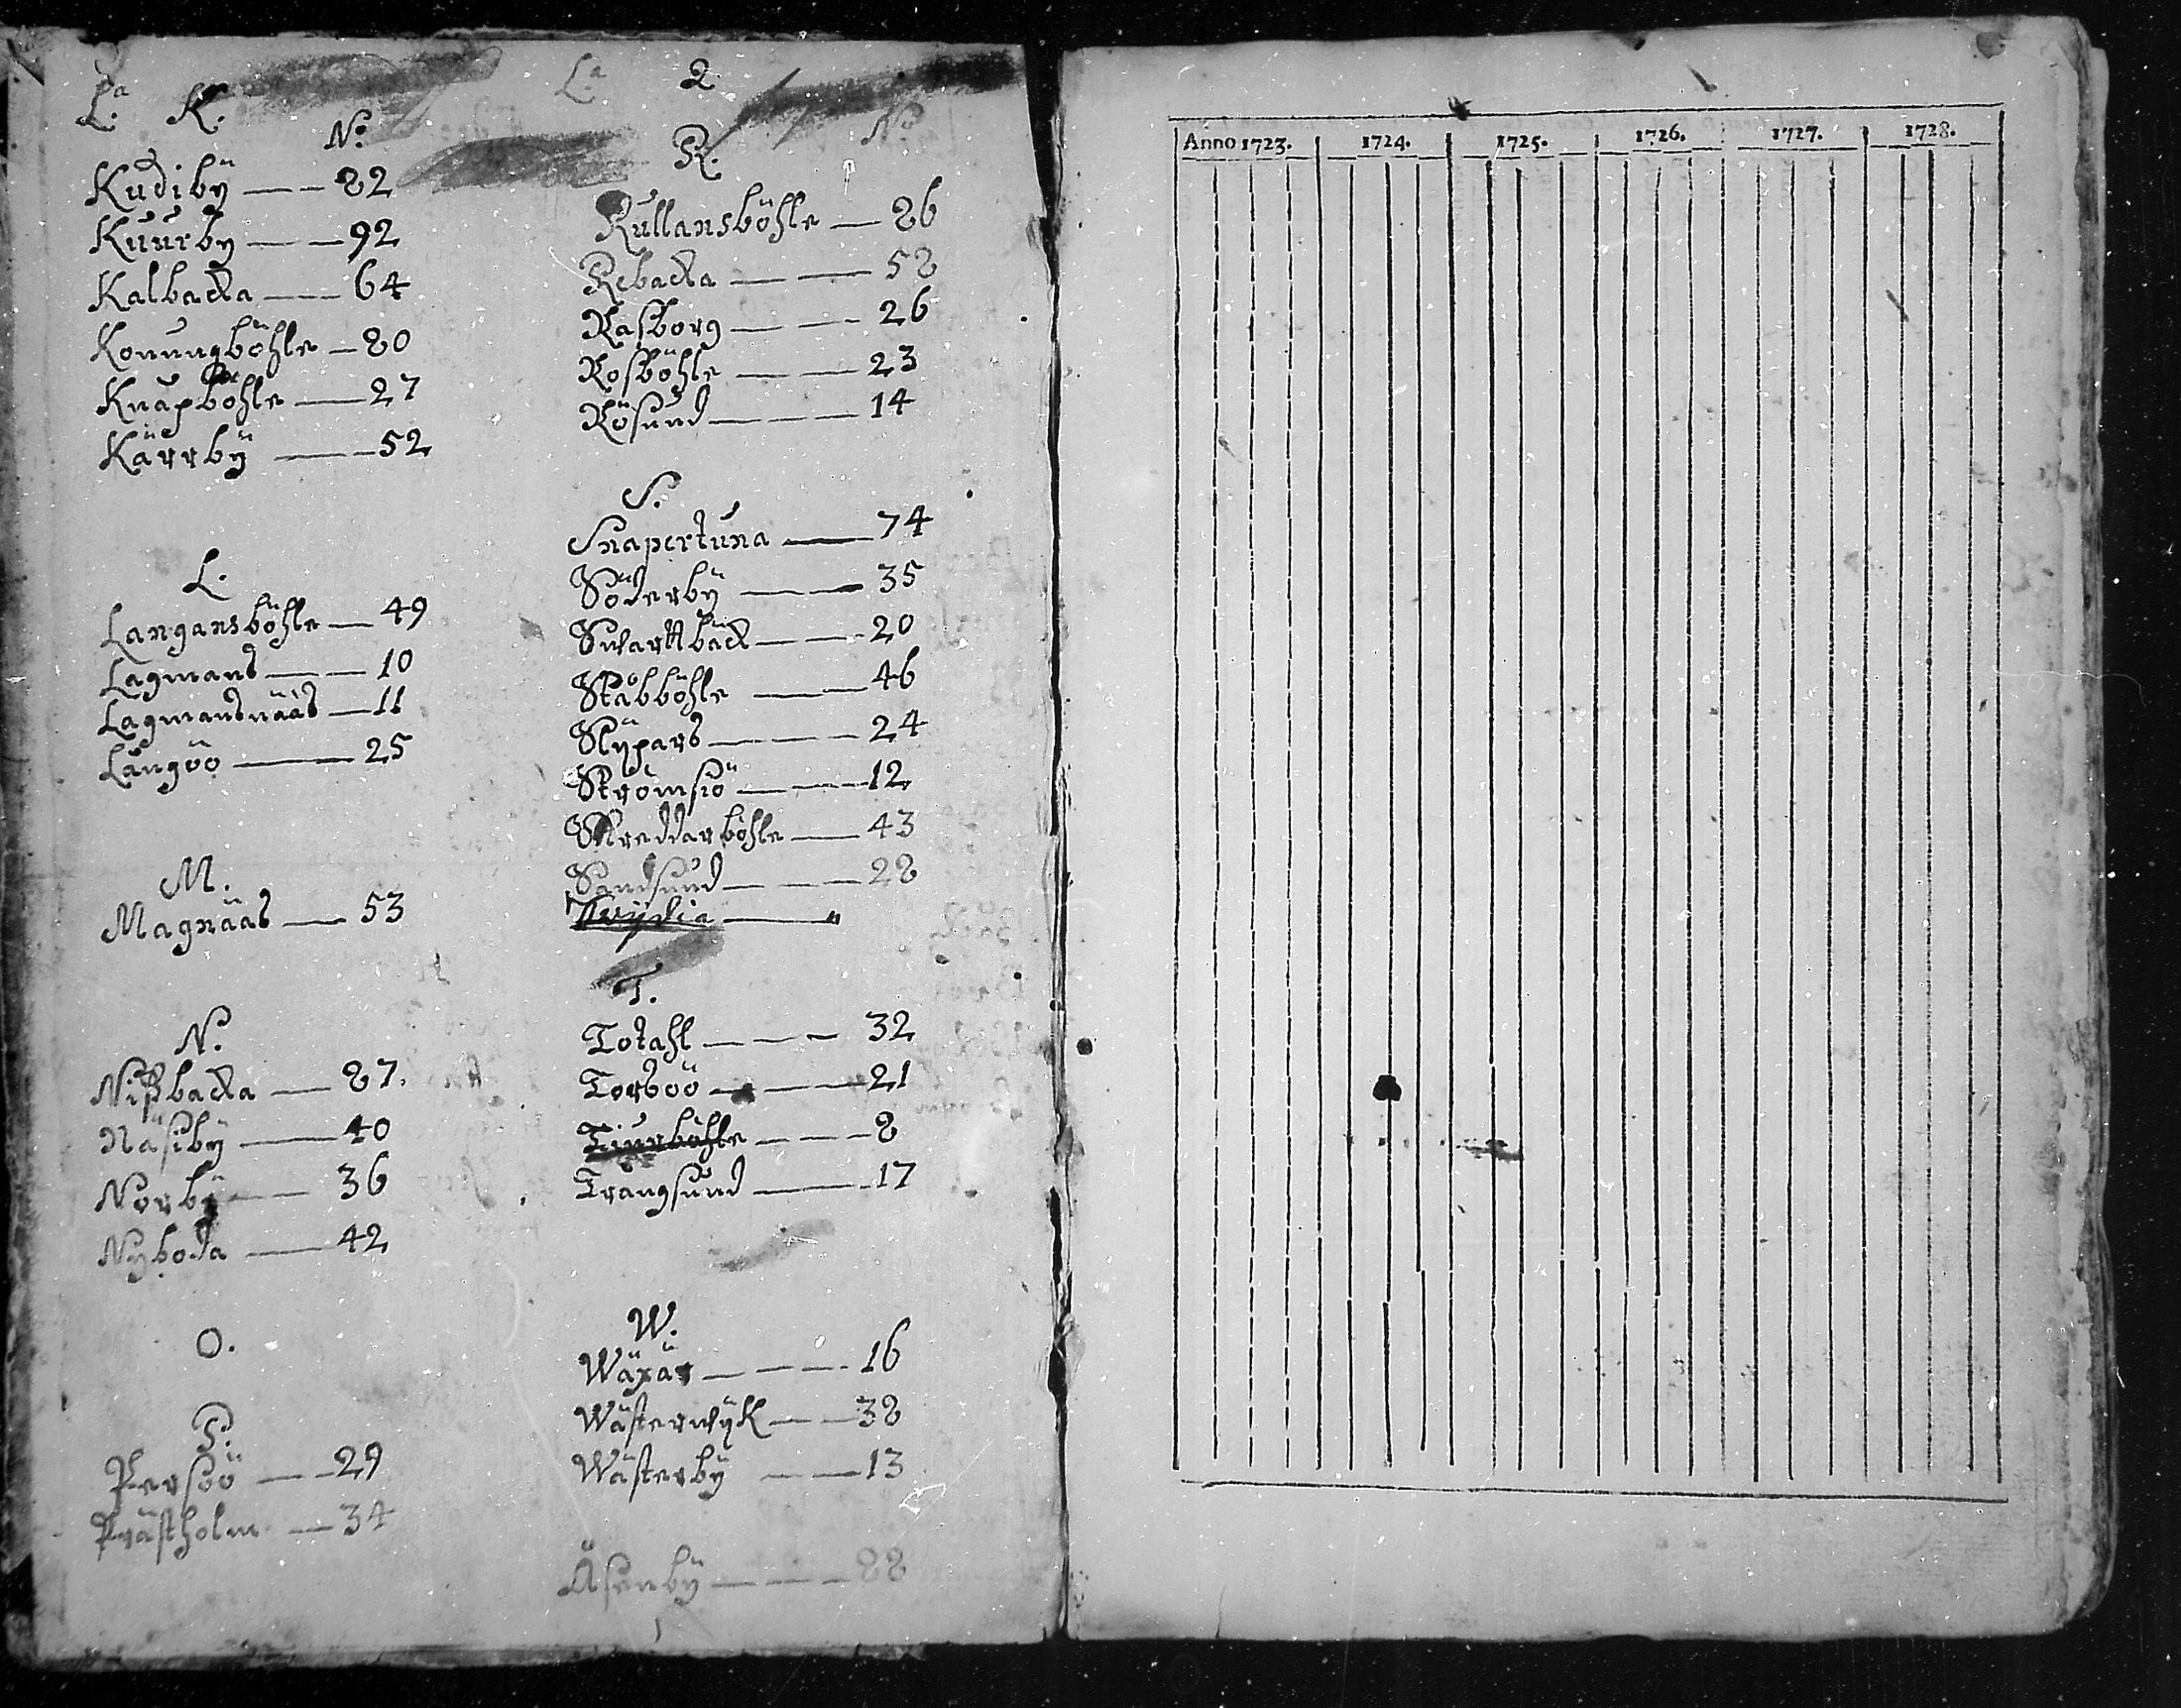 L:a K.
N:o
Kudibÿ — 82
Kuurbÿ — 92
Kalbacka — 64
Konungböhle — 80
Knapböhle — 27
Kärrbÿ — 52
L.
Langansböhle — 49
Lagmans — 10
Lagmansnääs — 11
Långöö — 25
M.
Magnääs — 53
N.
Nißbacka — 87.
Näsibÿ — 40
Norbÿ — 36
Nÿboda — 42
O.
P.
Persöö — 29
Prästholm — 34
L:a Q
R. N:o
Rullansböhle — 86
Rebacka — 58
Rasborg — 26
Rosböhle — 23
Rösund — 14
S.
Snapertuna — 74
Söderbÿ — 35
Swarttbäck — 20
Stabböhle — 46
Slÿpars — 24
Strömsiö — 12
Skreddarböhle — 43
Sandsund — 28
T.
Totahl — 32
Torsöö — 21
Tiurböhle — 8
Trångsund — 17
W.
Wäxär — 16
Wästerwÿk — 38
Wästerbÿ — 13
Åsenbÿ — 88
Anno 1723. 1724. 1725. 1726. 1727. 1728.